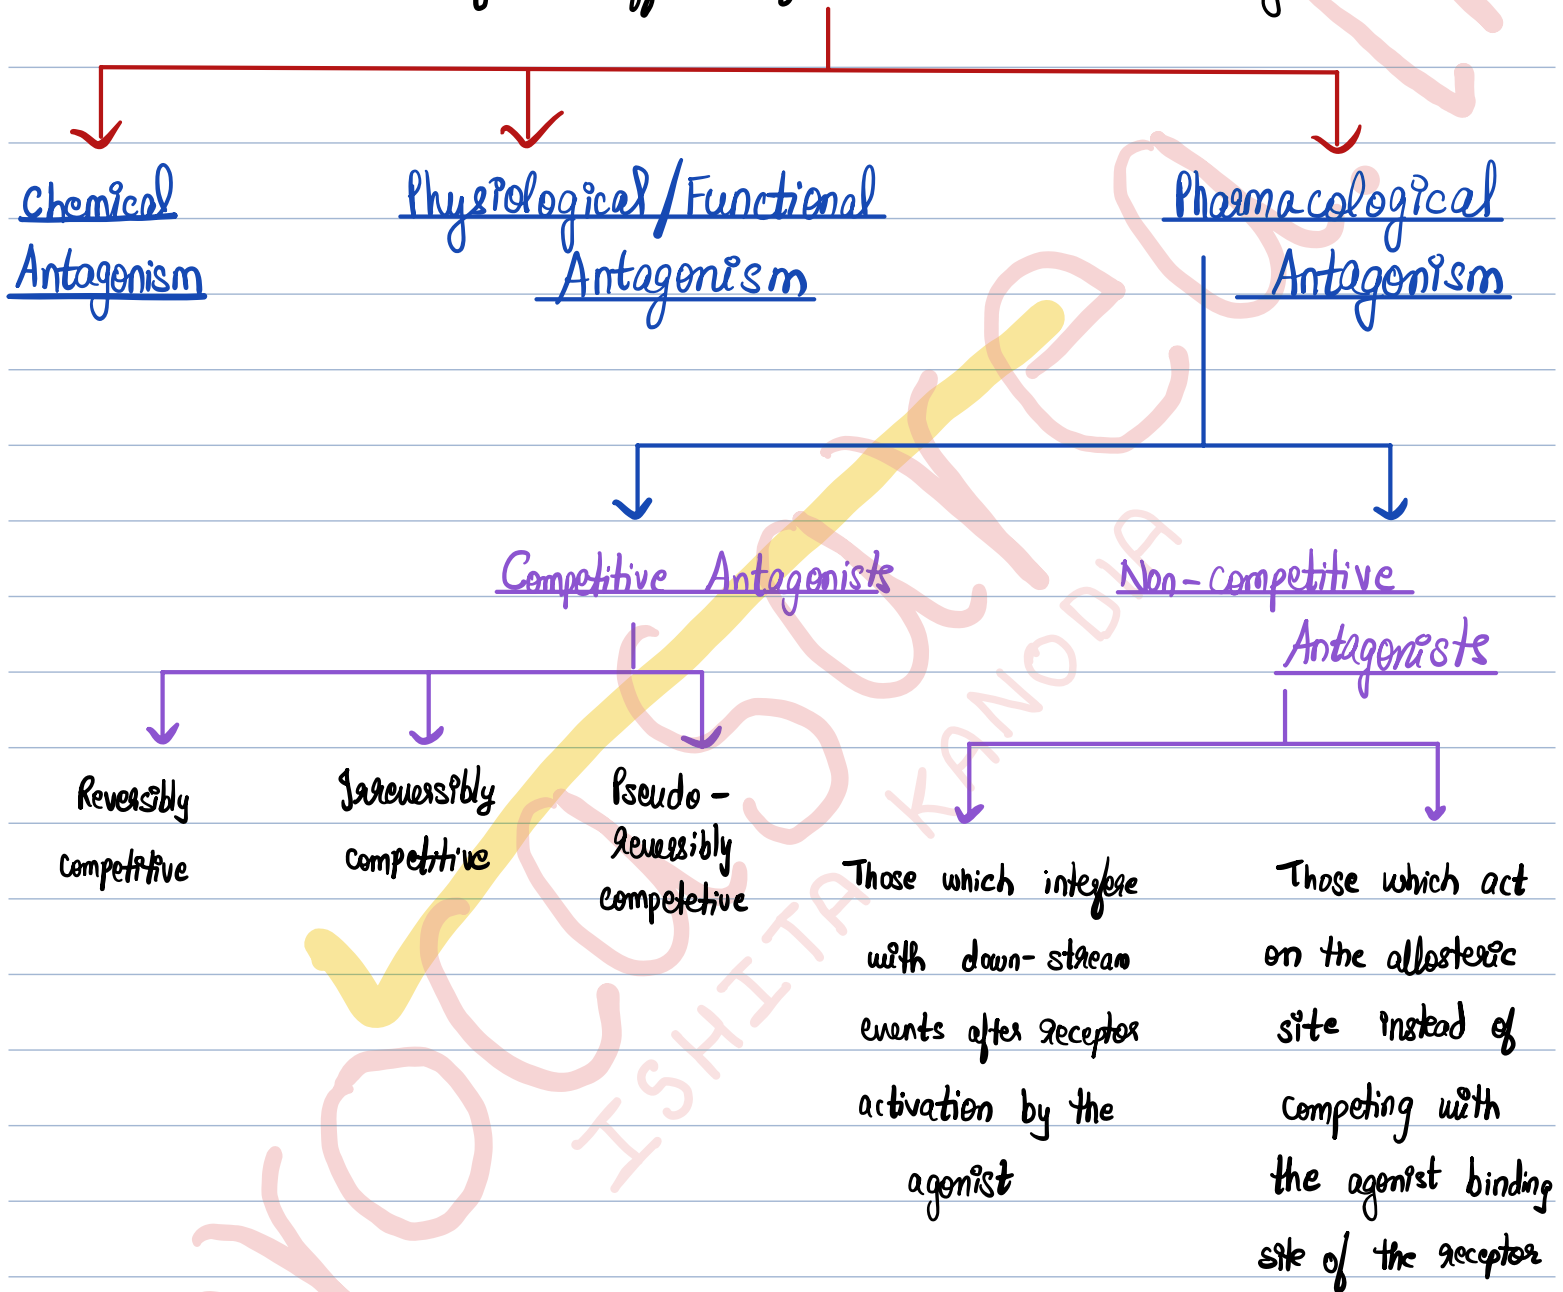 Chemical
Antagonism
Physiological/Functional
Antagonism
Pharmacological
Antagonism
Competitive Antagonists
Non-competitive
Antagonists
Reversibly
competitive
Irreversibly
competitive
Pseudo-
reversibly
competetive
Those which interfere
with down-stream
events after receptor
activation by the
agonist
Those which act
on the allosteric
site instead of
competing with
the agonist binding
site of the receptor
ISHITA KANODIA